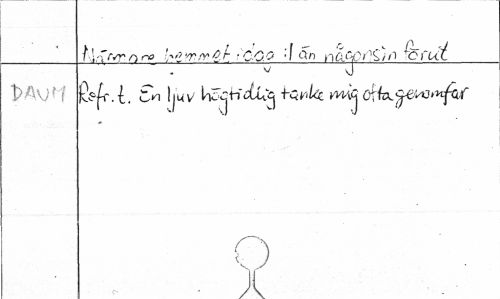 Närmare hemmet idag :l än någonsin förut
DAUM Refr. t. En ljuv högtidlig tanke mig ofta genomfar